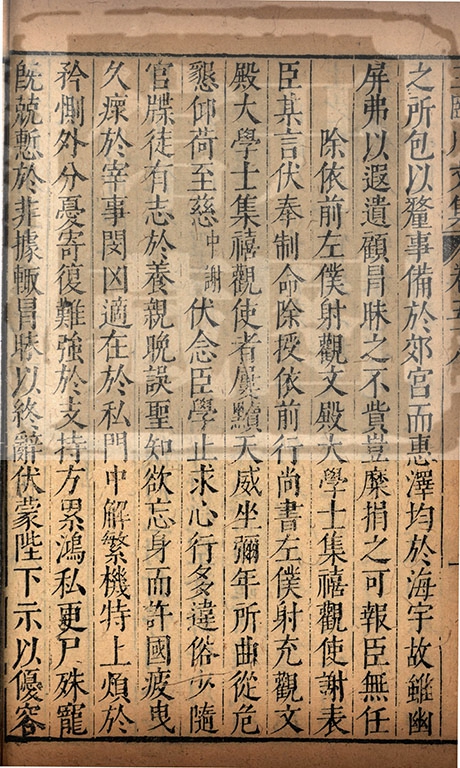 王臨川文集 卷五八
之所包以釐事備於郊宮而惠澤均於海宇故雖幽
屏弗以遐遺顧冐昧之不貲豈糜捐之可報臣無任
除依前左僕射觀文殿大學士集禧觀使謝表
臣某言伏奉制命除授依前行尚書左僕射充觀文
殿大學士集禧觀使者屢黷天威坐彌年所曲從危
懇仰荷至慈中謝伏念臣學止求心行多違俗少隨
官牒徒有志於養親晚誤聖知欲忘身而許國疲曳
久瘝於宰事閔凶適在於私門中解繁機特上煩於
矜惻外分憂寄復難強於支持方累鴻私更尸殊寵
旣兢慙於非據輒冐昧以終辭伏蒙陛下示以優容